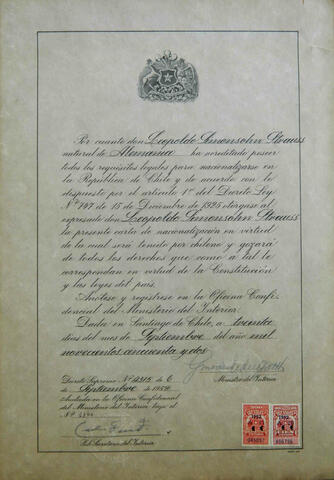 Por cuanto don Leopoldo Simonsohn Strauss
natural de Alemania ha acreditado poseer
todos los requisitos legales para nacionalizarse en
la República de Chile y de acuerdo con lo
dispuesto por el artículo 1º del Decreto Ley
Nº 747 de 15 de Diciembre de 1925 otórgase al
expresado don Leopoldo Simonsohn Strauss
la presente carta de nacionalización en virtud
de la cual será tenido por chileno y gozará
de todos los derechos que como a tal le
correspondan en virtud de la Constitución
y las leyes del país.
Anótese y regístrese en la Oficina Confi-
dencial del Ministerio del Interior.
Dada en Santiago de Chile, a treinta
días del mes de Septiembre del año mil
novecientos cincuenta y dos
Ministro del Interior
Decreto Supremo Nº 4315 de 6
de Septiembre de 1952
Anotada en la Oficina Confidencial
del Ministerio del Interior bajo el
Nº
Sub Secretario del Interior
1952 1952